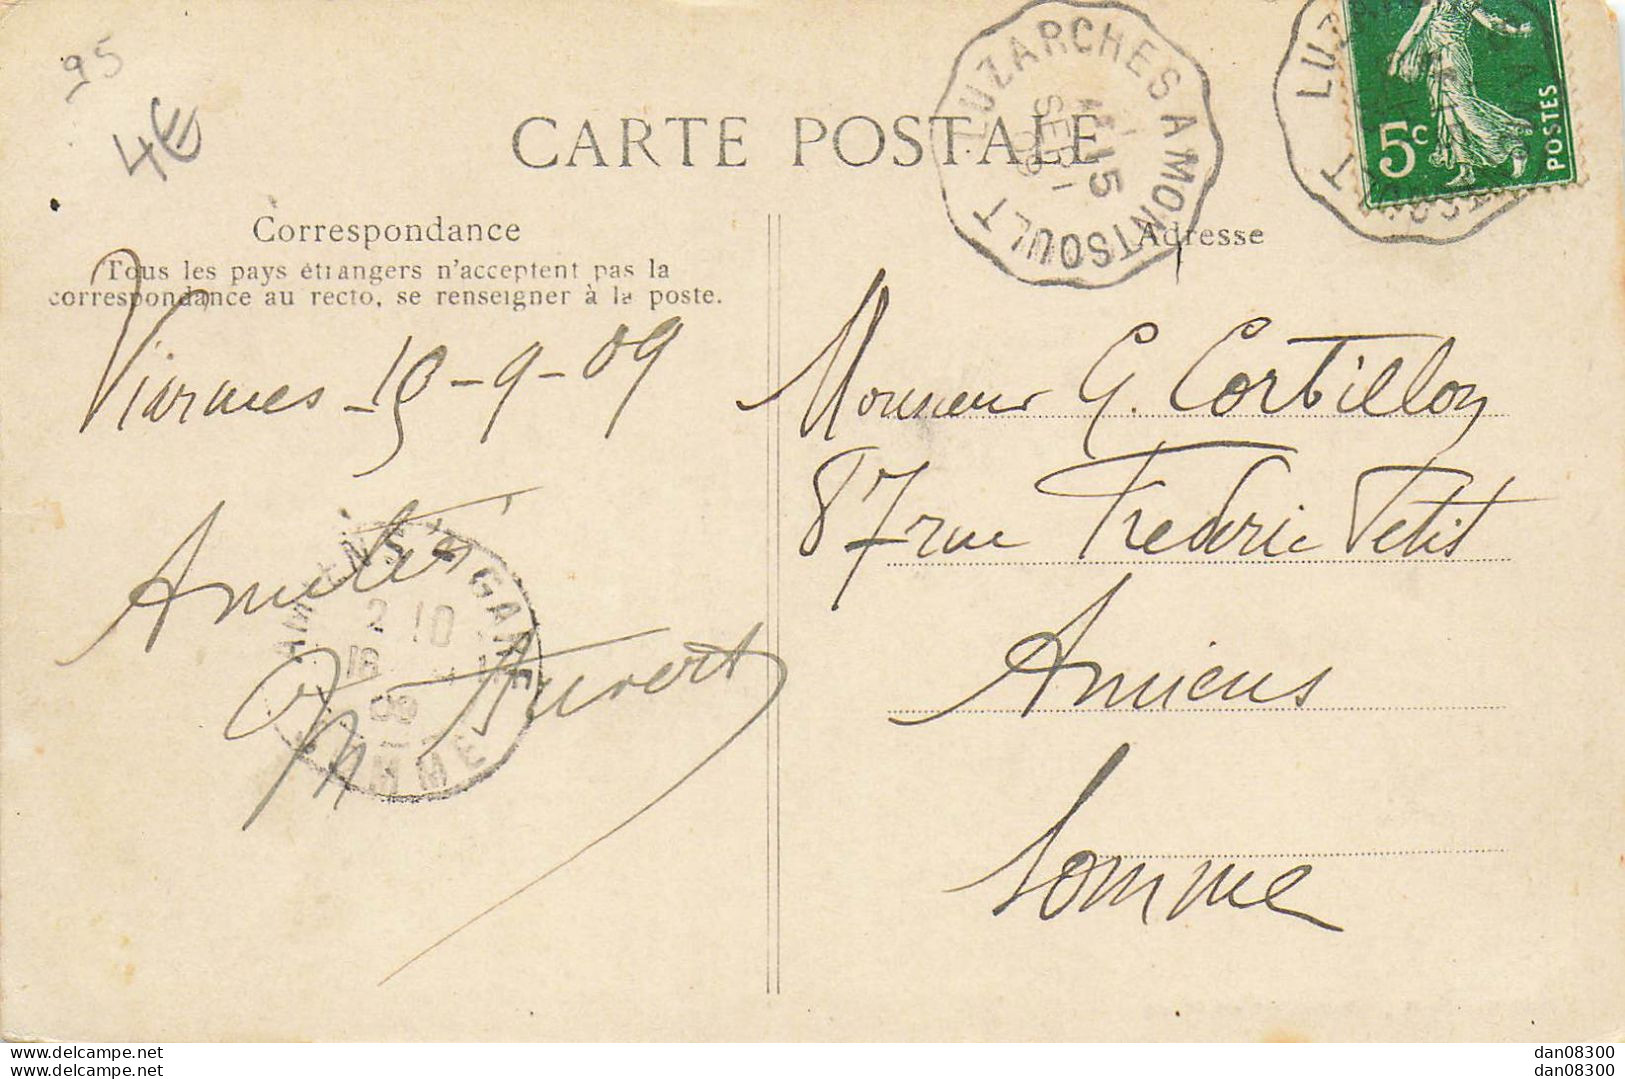 95
4€
CARTE POSTALE
LUZARCHES A MONTSOULT
15
SEPT
09
LUZ
5c
POSTES
Correspondance
Adresse
Tous les pays étrangers n'acceptent pas la
correspondance au recto, se renseigner à la poste.
Viarmes 15-9-09
Amitiés
Auvert
AMIENS GARE
2 10
16
09
SOMME
Monsieur G. Corbillon
87 rue Frederic Petit
Amiens
Somme
www.delcampe.net
www.delcampe.net
dan08300
dan08300